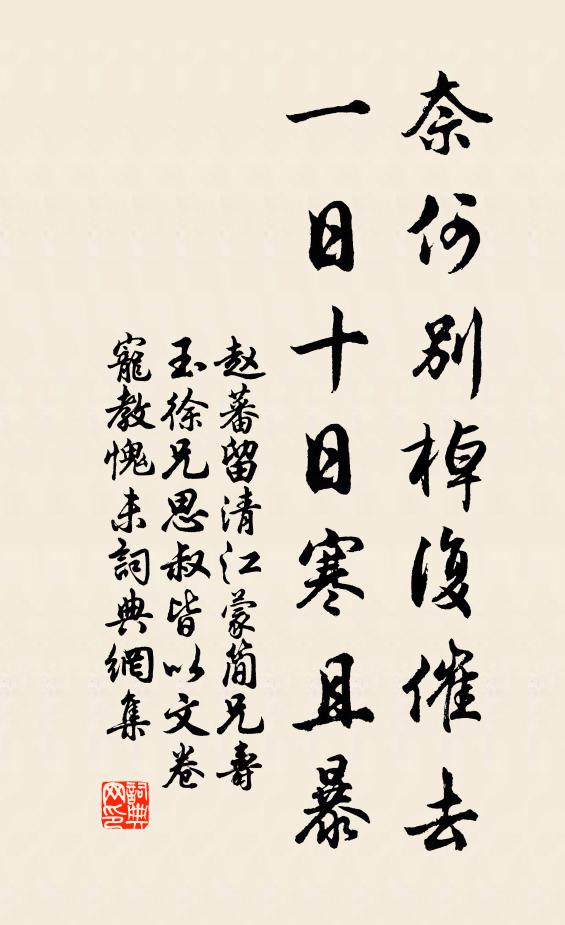 奈何別棹復催去
一日十日寒且暴
赵蕃留清江蒙簡兄壽
玉徐兄思叔皆以文卷
寵教愧未詞典網集
詞典
网印